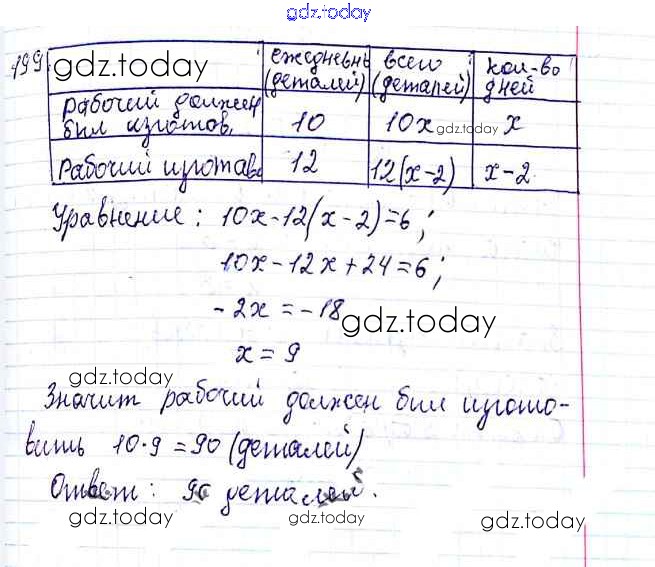 gdz.today
199. gdz.today
ежедневно (деталей) всего (деталей) кол-во дней
рабочий должен был изготов. 10 10x gdz.today x
рабочий изготавл 12 12(x-2) x-2
Уравнение: 10x-12(x-2)=6;
10x-12x+24=6;
-2x=-18
gdz.today
x=9
gdz.today
Значит рабочий должен был изгото-
вить 10·9=90 (деталей)
Ответ: 90 деталей.
gdz.today gdz.today gdz.today